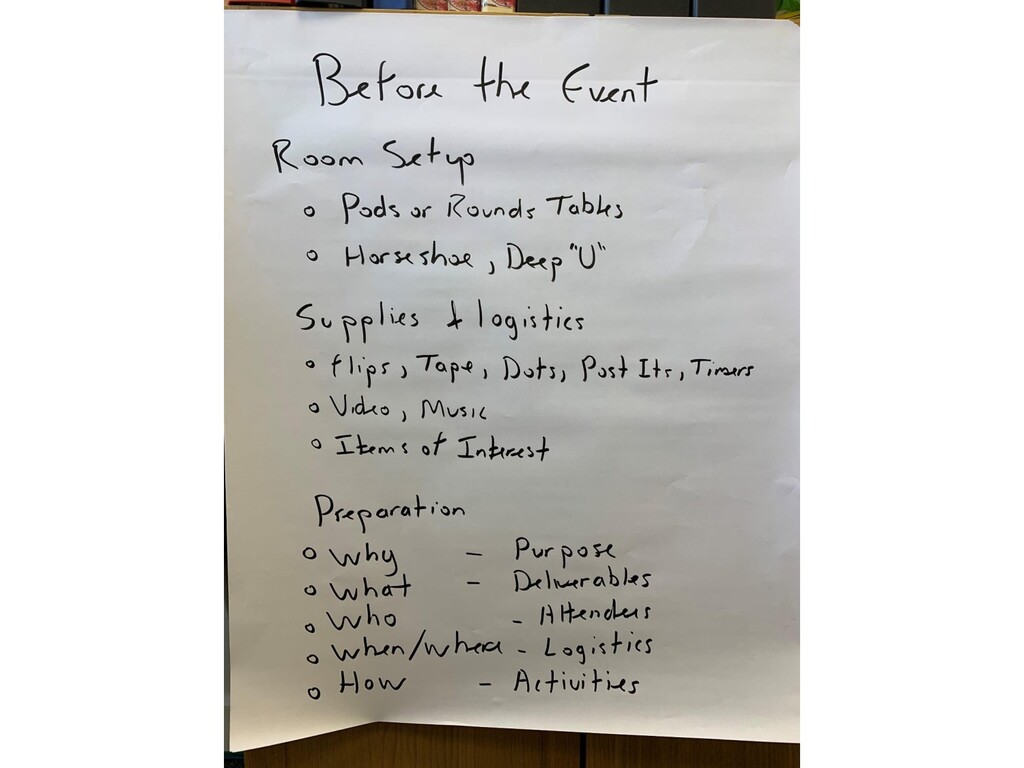 Before the Event
Room Setup
o Pods or Rounds Tables
o Horseshoe, Deep "U"
Supplies & logistics
o flips, Tape, Dots, Post Its, Timers
o Video, Music
o Items of Interest
Preparation
o Why - Purpose
o What - Deliverables
o Who - Attenders
o When/Where - Logistics
o How - Activities